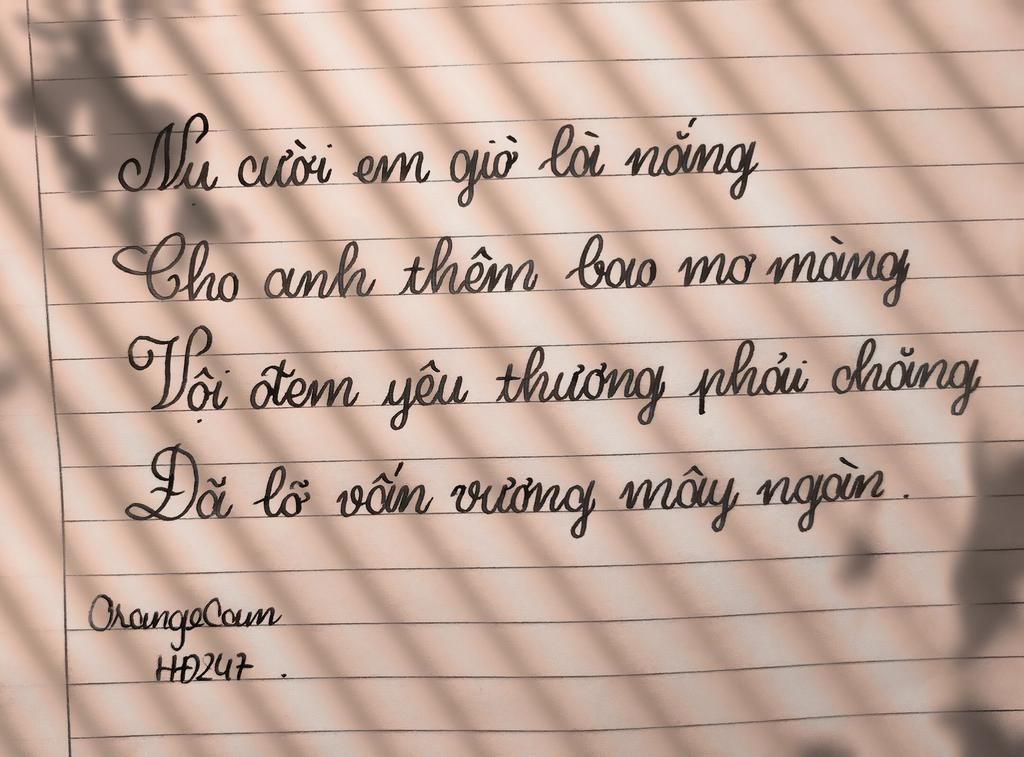 Nụ cười em giờ là nắng
Cho anh thêm bao mơ màng
Vội đem yêu thương phải chăng
Đã lỡ vấn vương mây ngàn.
OrangeCam
HĐ247.